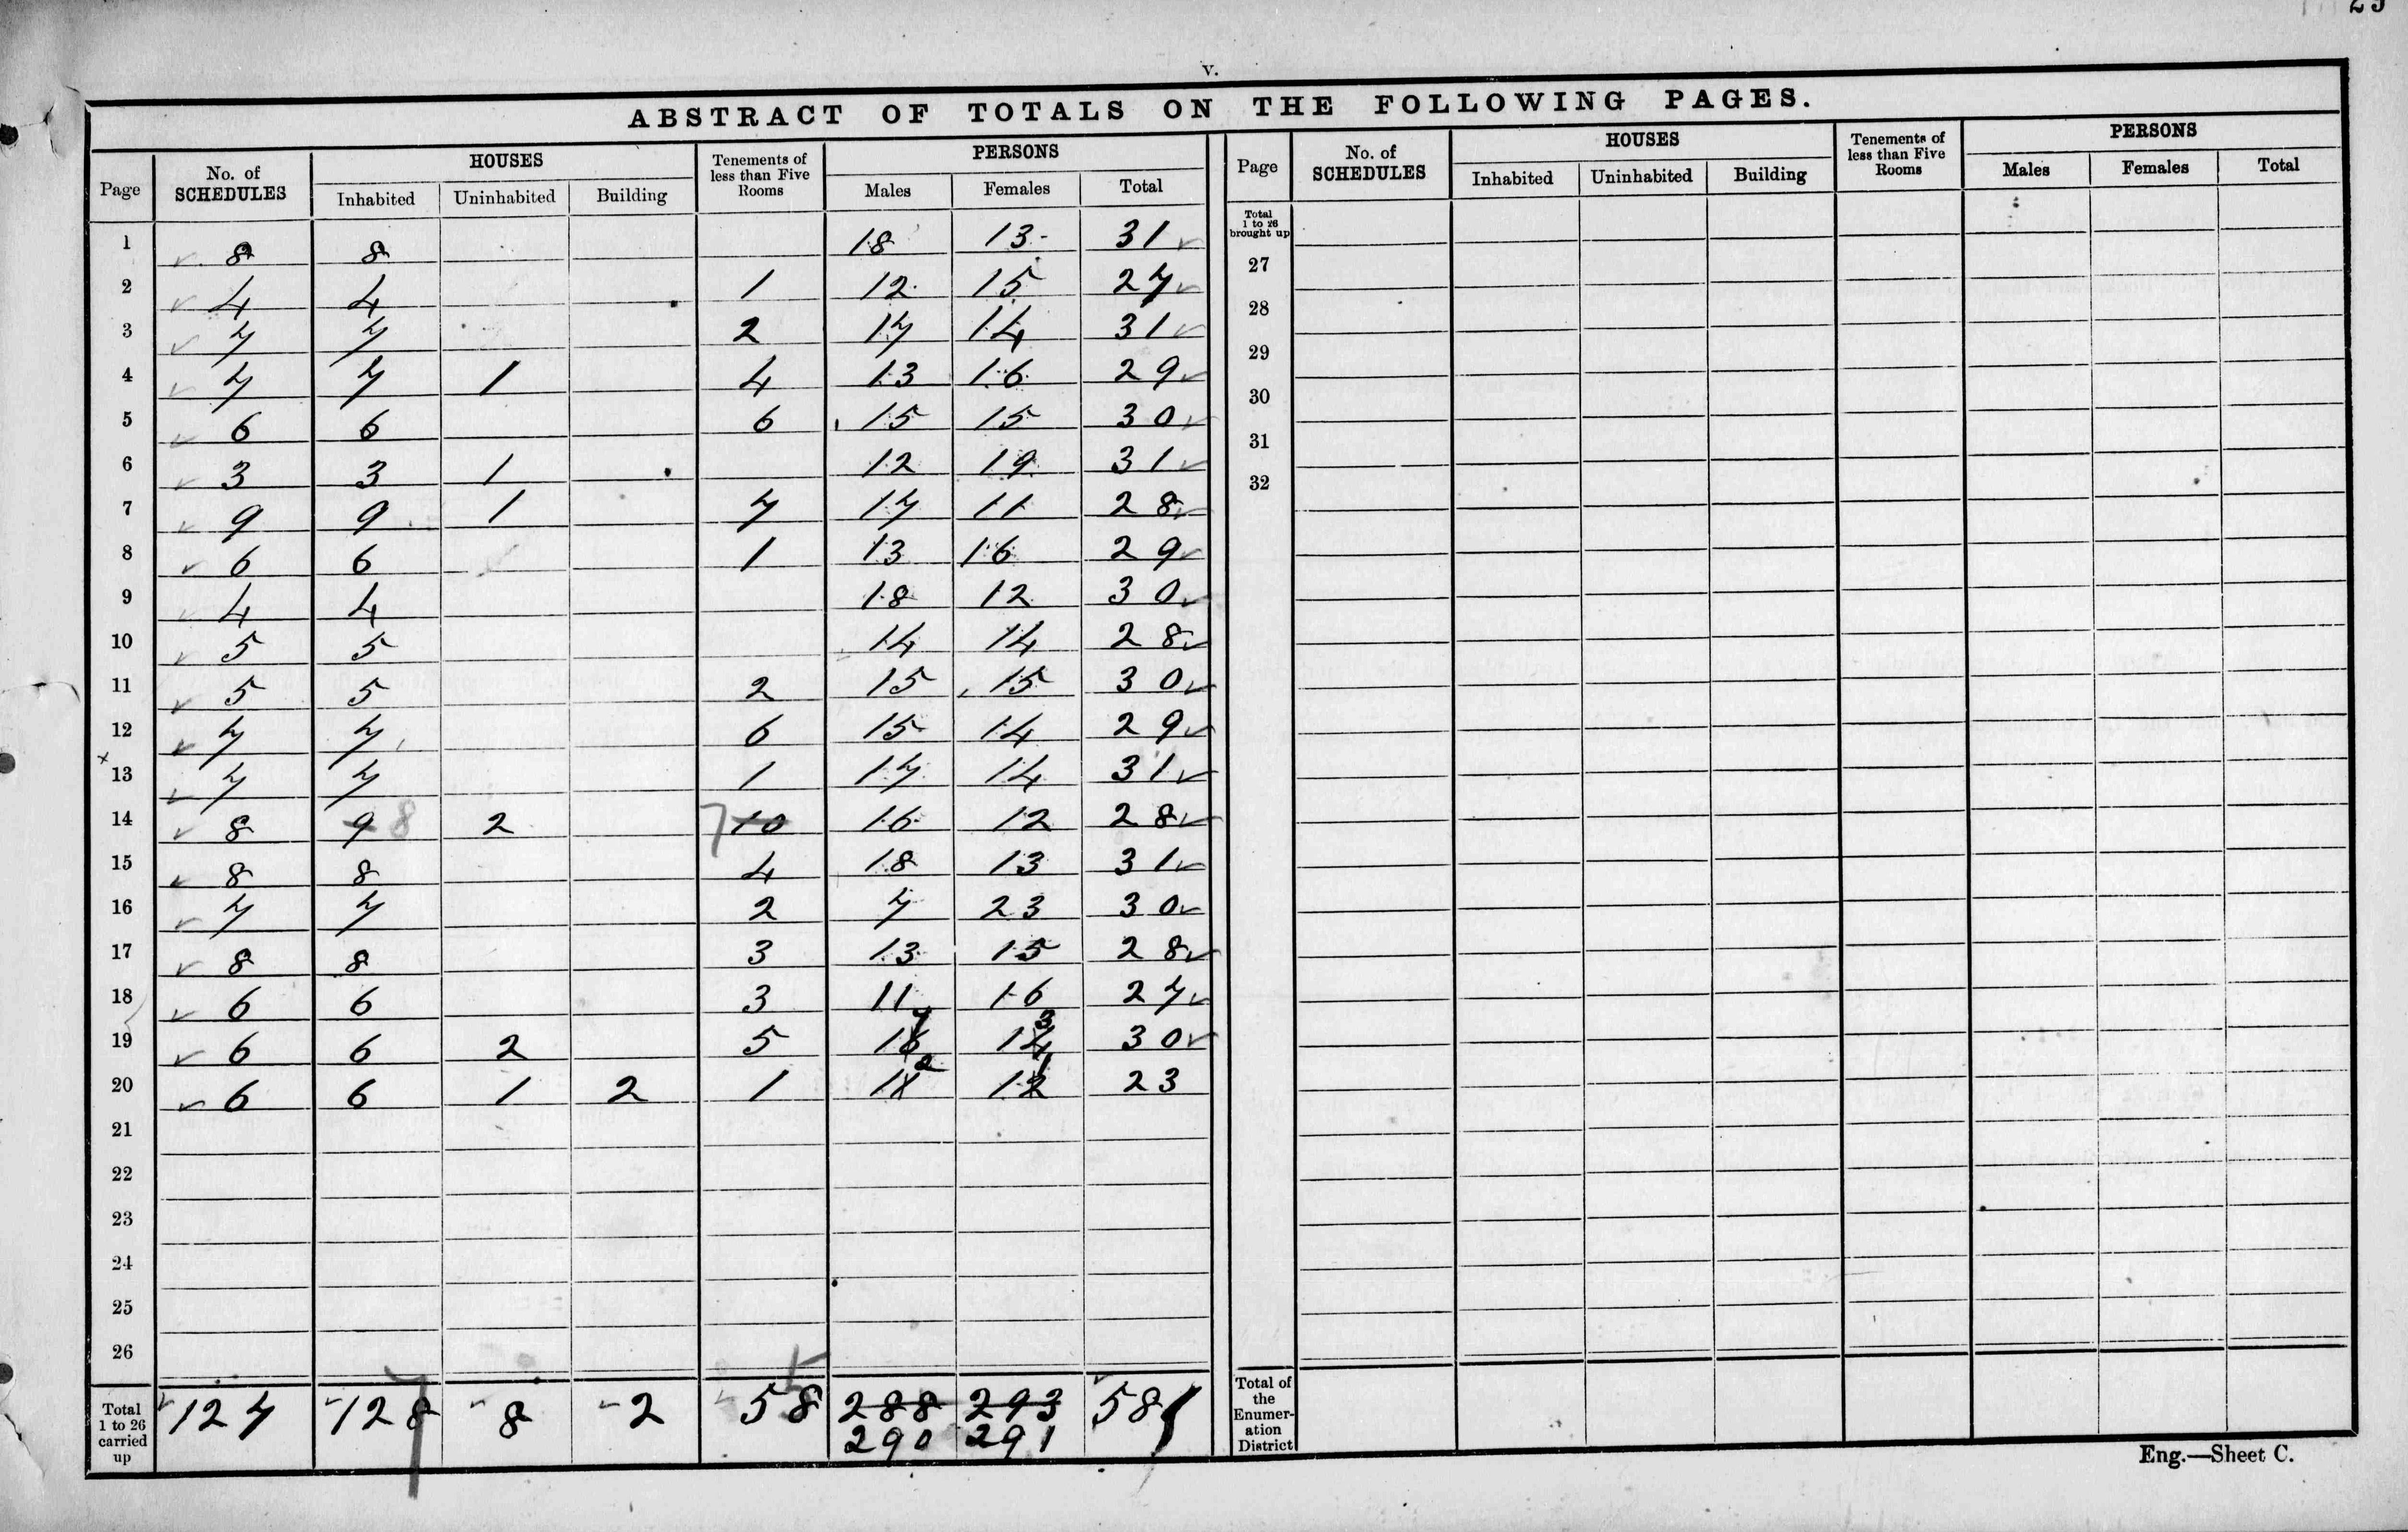 25
v.
ABSTRACT OF TOTALS ON THE FOLLOWING PAGES.
Page No. of SCHEDULES HOUSES Inhabited Uninhabited Building Tenements of less than Five Rooms PERSONS Males Females Total
1 8 8 18 13 31
2 4 4 1 12 15 27
3 7 7 2 17 14 31
4 7 7 1 4 13 16 29
5 6 6 6 15 15 30
6 3 3 1 12 19 31
7 9 9 1 7 17 11 28
8 6 6 1 13 16 29
9 4 4 18 12 30
10 5 5 14 14 28
11 5 5 2 15 15 30
12 7 7 6 15 14 29
13 7 7 1 17 14 31
14 8 9 8 2 7 10 16 12 28
15 8 8 4 18 13 31
16 7 7 2 7 23 30
17 8 8 3 13 15 28
18 6 6 3 11 16 27
19 6 6 2 5 16 7 14 3 30
20 6 6 1 2 1 11 2 12 1 23
21
22
23
24
25
26
Total 1 to 26 carried up 127 128 7 8 2 58 5 288 293 581
290 291
Page No. of SCHEDULES HOUSES Inhabited Uninhabited Building Tenements of less than Five Rooms PERSONS Males Females Total
Total 1 to 26 brought up
27
28
29
30
31
32
Total of the Enumer-
ation District
Eng.—Sheet C.